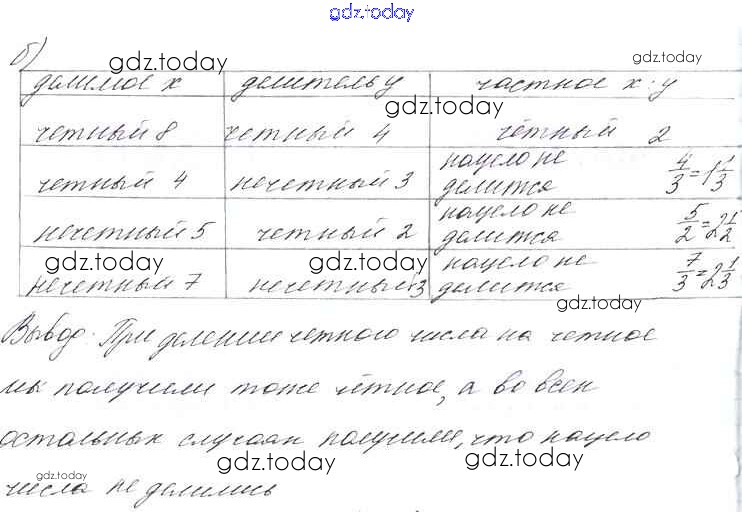 gdz.today
б)
gdz.today gdz.today
делимое x делитель y частное x : y
gdz.today
четный 8 четный 4 чётный 2
четный 4 нечетный 3 нацело не делится 4/3 = 1 1/3
нечетный 5 четный 2 нацело не делится 5/2 = 2 1/2
gdz.today gdz.today
нечетный 7 нечетный 3 нацело не делится 7/3 = 2 1/3
gdz.today
Вывод: При делении четного числа на четное
gdz.today
мы получили тоже чётное, а во всех
gdz.today
остальных случаях получили, что нацело
gdz.today gdz.today gdz.today
числа не делились